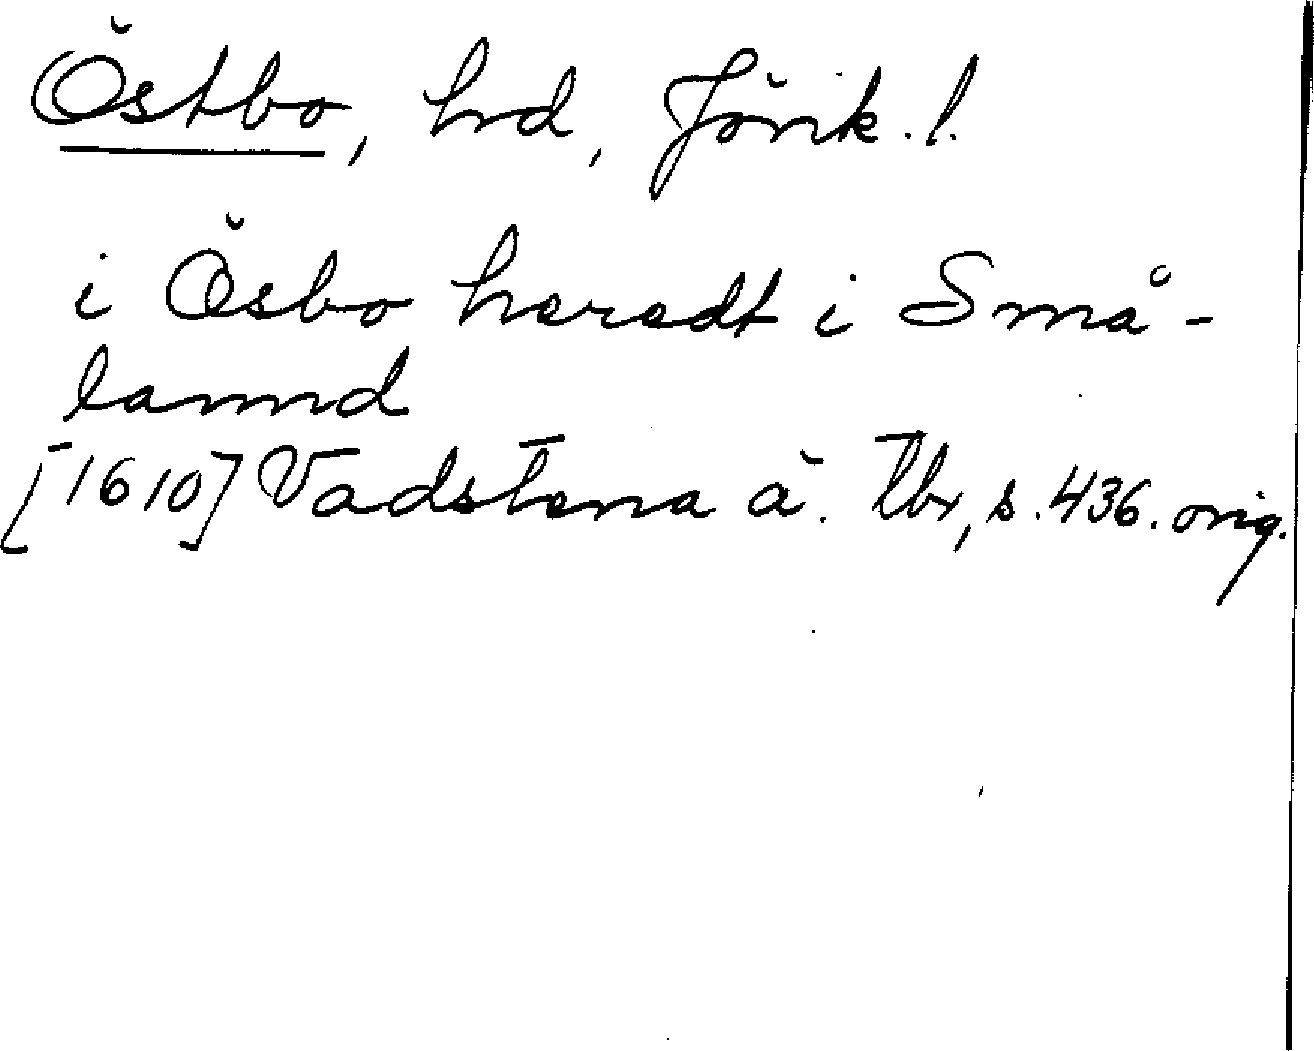 Östbo, hrd, Jönk. l.
i Ösbo haradt i Små-
lannd
[1610] Vadstena ä. tbr, s. 436. orig.